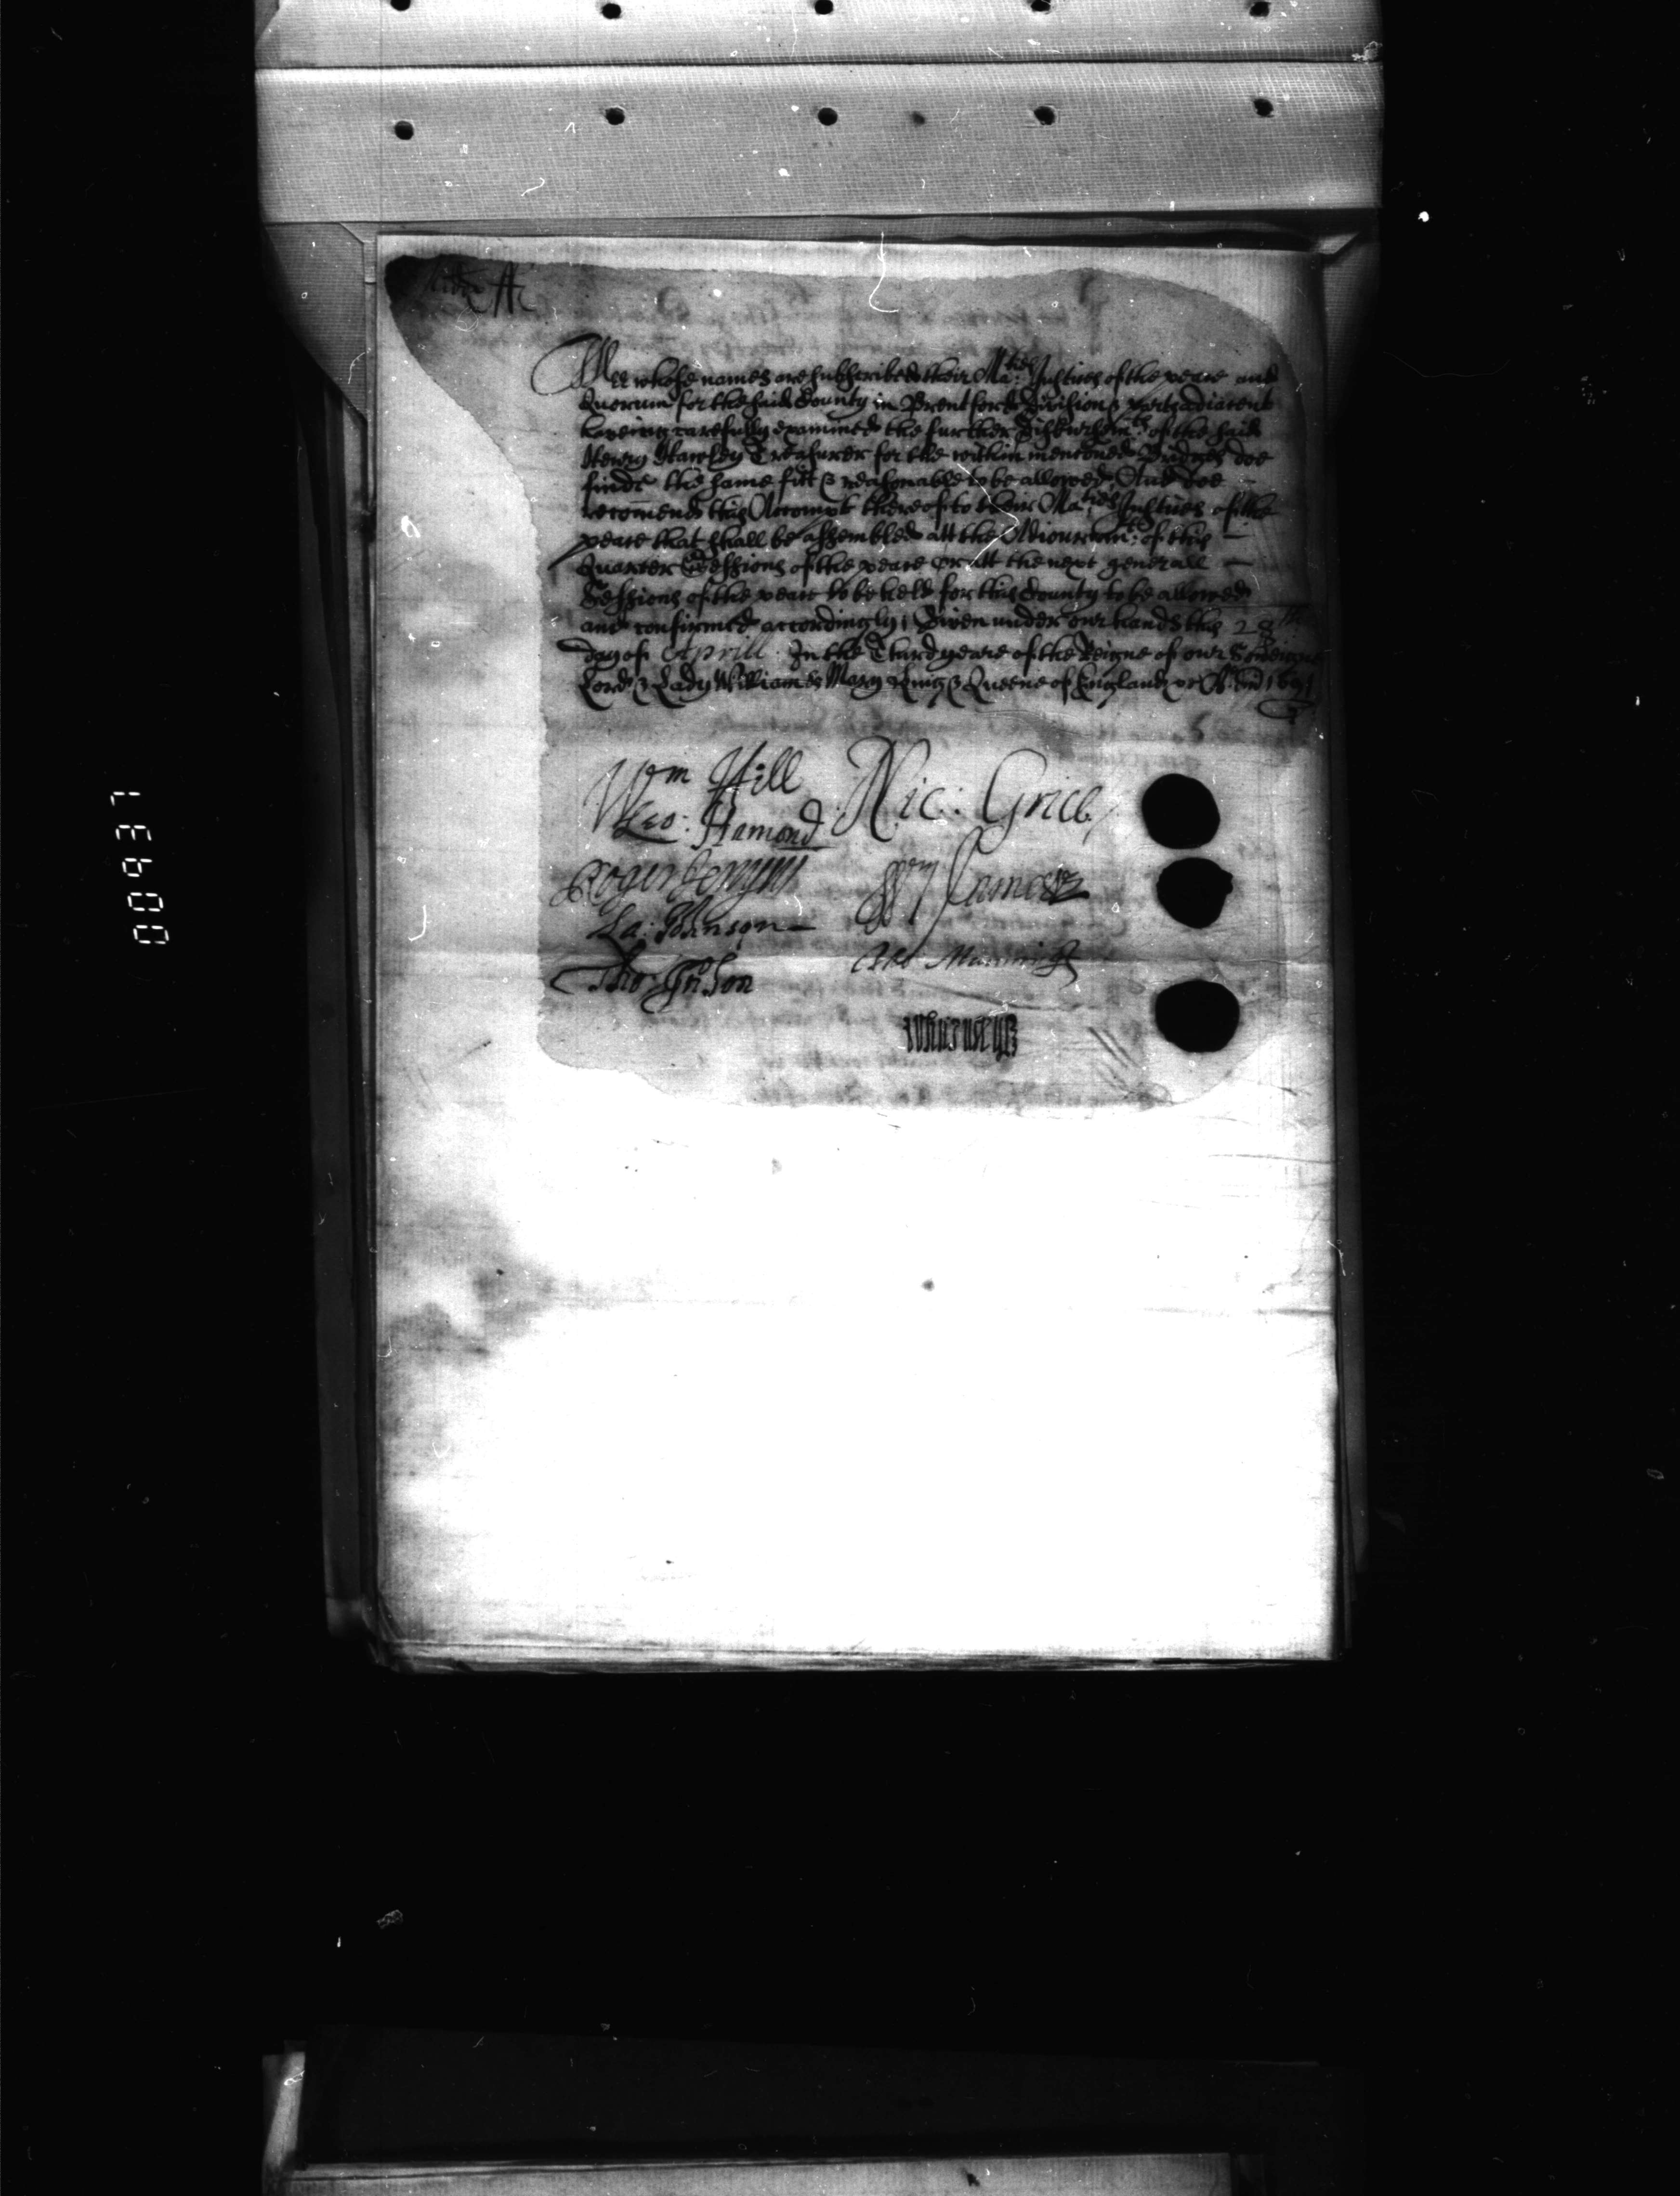 Wee whose names are subscribed their Ma:ties Justices of the peace and
Quorum for the said County in Brentford Division & parts adiacent
haveing carefully examined the further Disbursem:ts of the said
Henry Hawley Treasurer for the within mentioned Bridges doe
finde the same fitt & reasonable to be allowed And doe
recomend this Accompt thereof to their Ma:ties Justices of the
peace that shall be assembled att the Adiournm:t of this
Quarter Sessions of the peace or att the next generall
Sessions of the peace to be held for this County to be allowed
and confirmed accordingly; Given under our hands this 28th
day of Aprill In the Third yeare of the Reigne of our Soveraigne
Lord & Lady William & Mary King & Queene of England &c 1691
Wm Hill Nic: Grice
Leo: Hamond
Roger Jenyns Wm James
La: Johnson
Tho: Manning
Tho:
00937